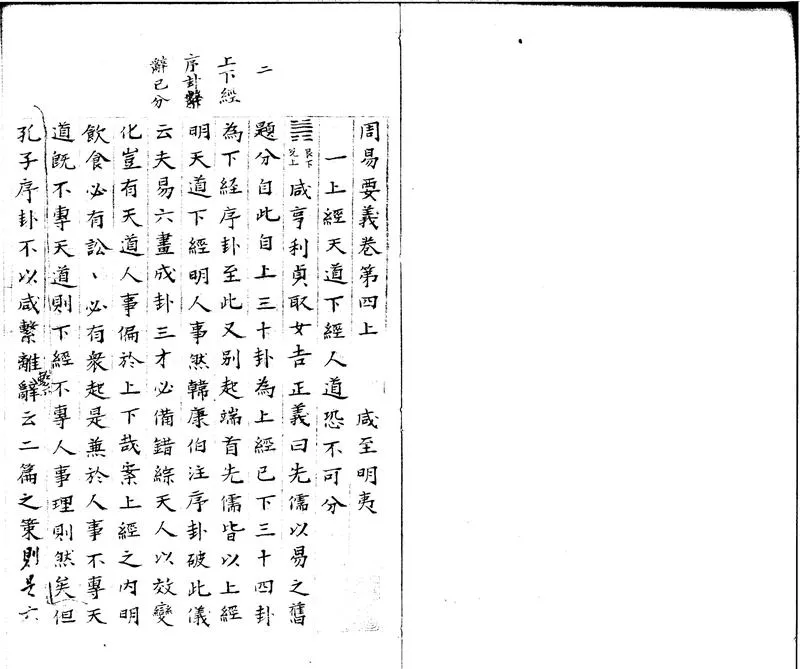 周易要義卷第四上　咸至明夷
一上經天道下經人道恐不可分
䷞艮下兌上咸亨利貞取女吉正義曰先儒以易之舊
題分自此自上三十卦為上經已下三十四卦
為下經序卦至此又別起端首先儒皆以上經
明天道下經明人事然韓康伯注序卦破此儀
云夫易六畫成卦三才必備錯綜天人以效變
化豈有天道人事偏於上下哉案上經之內明
飲食必有訟訟必有衆起是兼於人事不專天
道既不專天道則下經不專人事理則然矣但
孔子序卦不以咸繫離辭云二篇之策則是六
二
上下經
序卦辭
辭已分